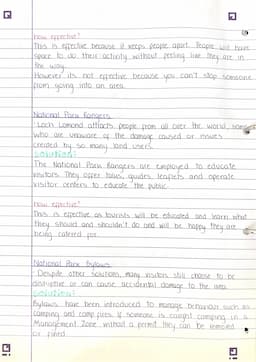 How effective?
This is effective because it keeps people apart. People will have
space to do their activity without feeling like they are in
the way.
However its not effective because you can't stop someone
from going into an area.
National Park Rangers
Loch Lomond attracts people from all over the world, some
who are unaware of the damage caused or issues
created by so many land users.
Solution:
The National Park Rangers are employed to educate
visitors. They offer talks, guides, leaflets and operate
visitor centers to educate the public.
How effective?
This is effective as tourists will be educated and learn what
they should and shouldn't do and will be happy they are
being catered for.
National Park Bylaws
Despite other solutions, many visitors still choose to be
disruptive or can cause accidental damage to the area.
Solution:
Bylaws have been introduced to manage behaviour such as
camping and camp fires. If someone is caught camping in a
Management Zone without a permit they can be removed
or fined.